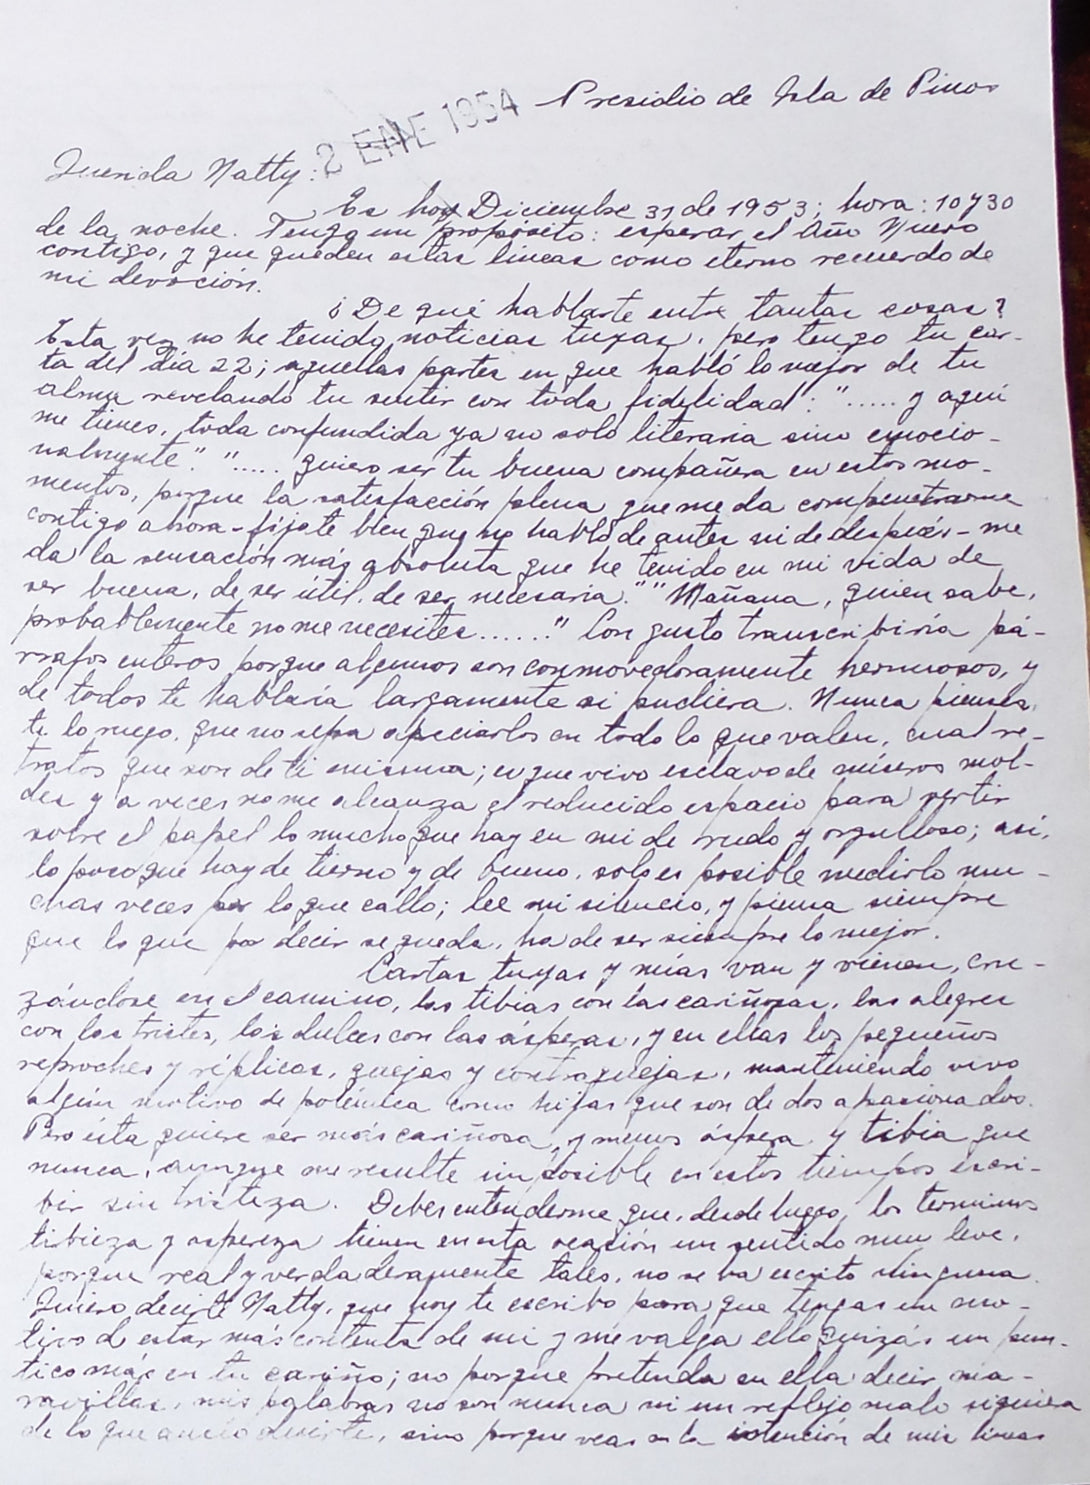 Presidio de Isla de Pinos
2 ENE 1954
Querida Natty:
Es hoy Diciembre 31 de 1953; hora: 10 y 30
de la noche. Tengo un propósito: esperar el Año Nuevo
contigo, y que queden estas lineas como eterno recuerdo de
mi devoción.
¿De qué hablarte entre tantas cosas?
Esta vez no he tenido noticias tuyas, pero tengo tu car-
ta del día 22; aquellas partes en que habló lo mejor de tu
alma revelando tu sentir con toda fidelidad: "..... y aquí
me tienes, toda confundida ya no solo literaria sino emocio-
nalmente". "..... quiero ser tu buena compañera en estos mo-
mentos, porque la satisfacción plena que me da compenetrarme
contigo ahora - fijate bien que no hablo de antes ni de después - me
da la sensación más absoluta que he tenido en mi vida de
ser buena, de ser útil, de ser necesaria." "Mañana, quien sabe,
probablemente no me necesites......" Con gusto transcribiría pá-
rrafos enteros porque algunos son conmovedoramente hermosos, y
de todos te hablaría largamente si pudiera. Nunca pienses,
te lo ruego, que no sepa apreciarlos en todo lo que valen, cual re-
tratos que son de ti misma; es que vivo esclavo de míseros mol-
des y a veces no me alcanza el reducido espacio para vertir
sobre el papel lo mucho que hay en mi de rudo y orgulloso; así,
lo poco que hay de tierno y de bueno, solo es posible medirlo mu-
chas veces por lo que callo; lee mi silencio, y piensa siempre
que lo que por decir se queda, ha de ser siempre lo mejor.
Cartas tuyas y mías van y vienen, cru-
zándose en el camino, las tibias con las cariñosas, las alegres
con las tristes, las dulces con las ásperas, y en ellas los pequeños
reproches y réplicas, quejas y contraquejas, manteniendo vivo
algún motivo de polémica como hijas que son de dos apasionados.
Pero ésta quiere ser más cariñosa, y menos áspera y tibia que
nunca, aunque me resulte imposible en estos tiempos escri-
bir sin tristeza. Debes entenderme que, desde luego, los terminos
tibieza y aspereza tienen en esta ocasión un sentido muy leve,
porque real y verdaderamente tales, no se ha escrito ninguna.
Quiero decirte Natty, que hoy te escribo para que tengas un mo-
tivo de estar más contenta de mi y me valga ello quizás un pun-
tico más en tu cariño; no porque pretenda en ella decir ma-
ravillas, mis palabras no son nunca ni un reflejo malo siquiera
de lo que ansío decirte, sino porque veas en la intención de mis lineas